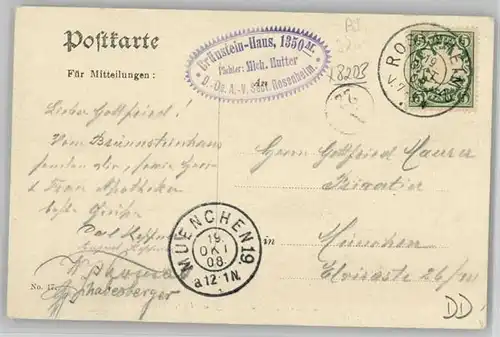 Postkarte
Für Mitteilungen:
Brünnstein-Haus, 1350 M.
Pächter: Mich. Hutter
D.-Oe. A.-V. Sect. Rosenheim.
18203
ROSENHEIM
5 5
Lieber Gottfried!
Vom Brünnsteinhaus
senden dir, sowie Herrn
& Frau Apotheker
beste Grüße
Carl
Herrn Gottfried Maurer
Privatier
in München
Elvirastr. 26/III
MUENCHEN 19.
19.
OKT
08.
a.12-1N.
No. 17
DD